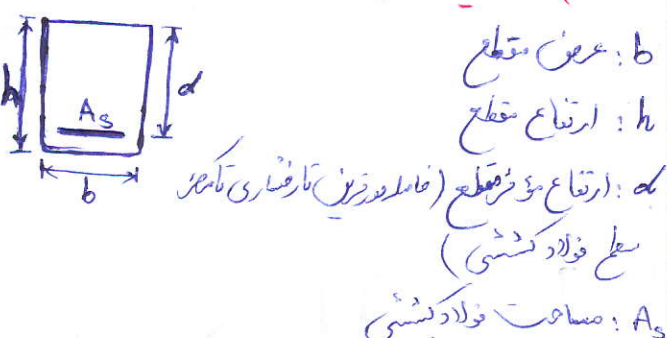 b : عرض مقطع
h : ارتفاع مقطع
d : ارتفاع مؤثر مقطع (فاصله دورترین تار فشاری تا مرکز
سطح فولاد کششی)
As : مساحت فولاد کششی
h
d
As
b